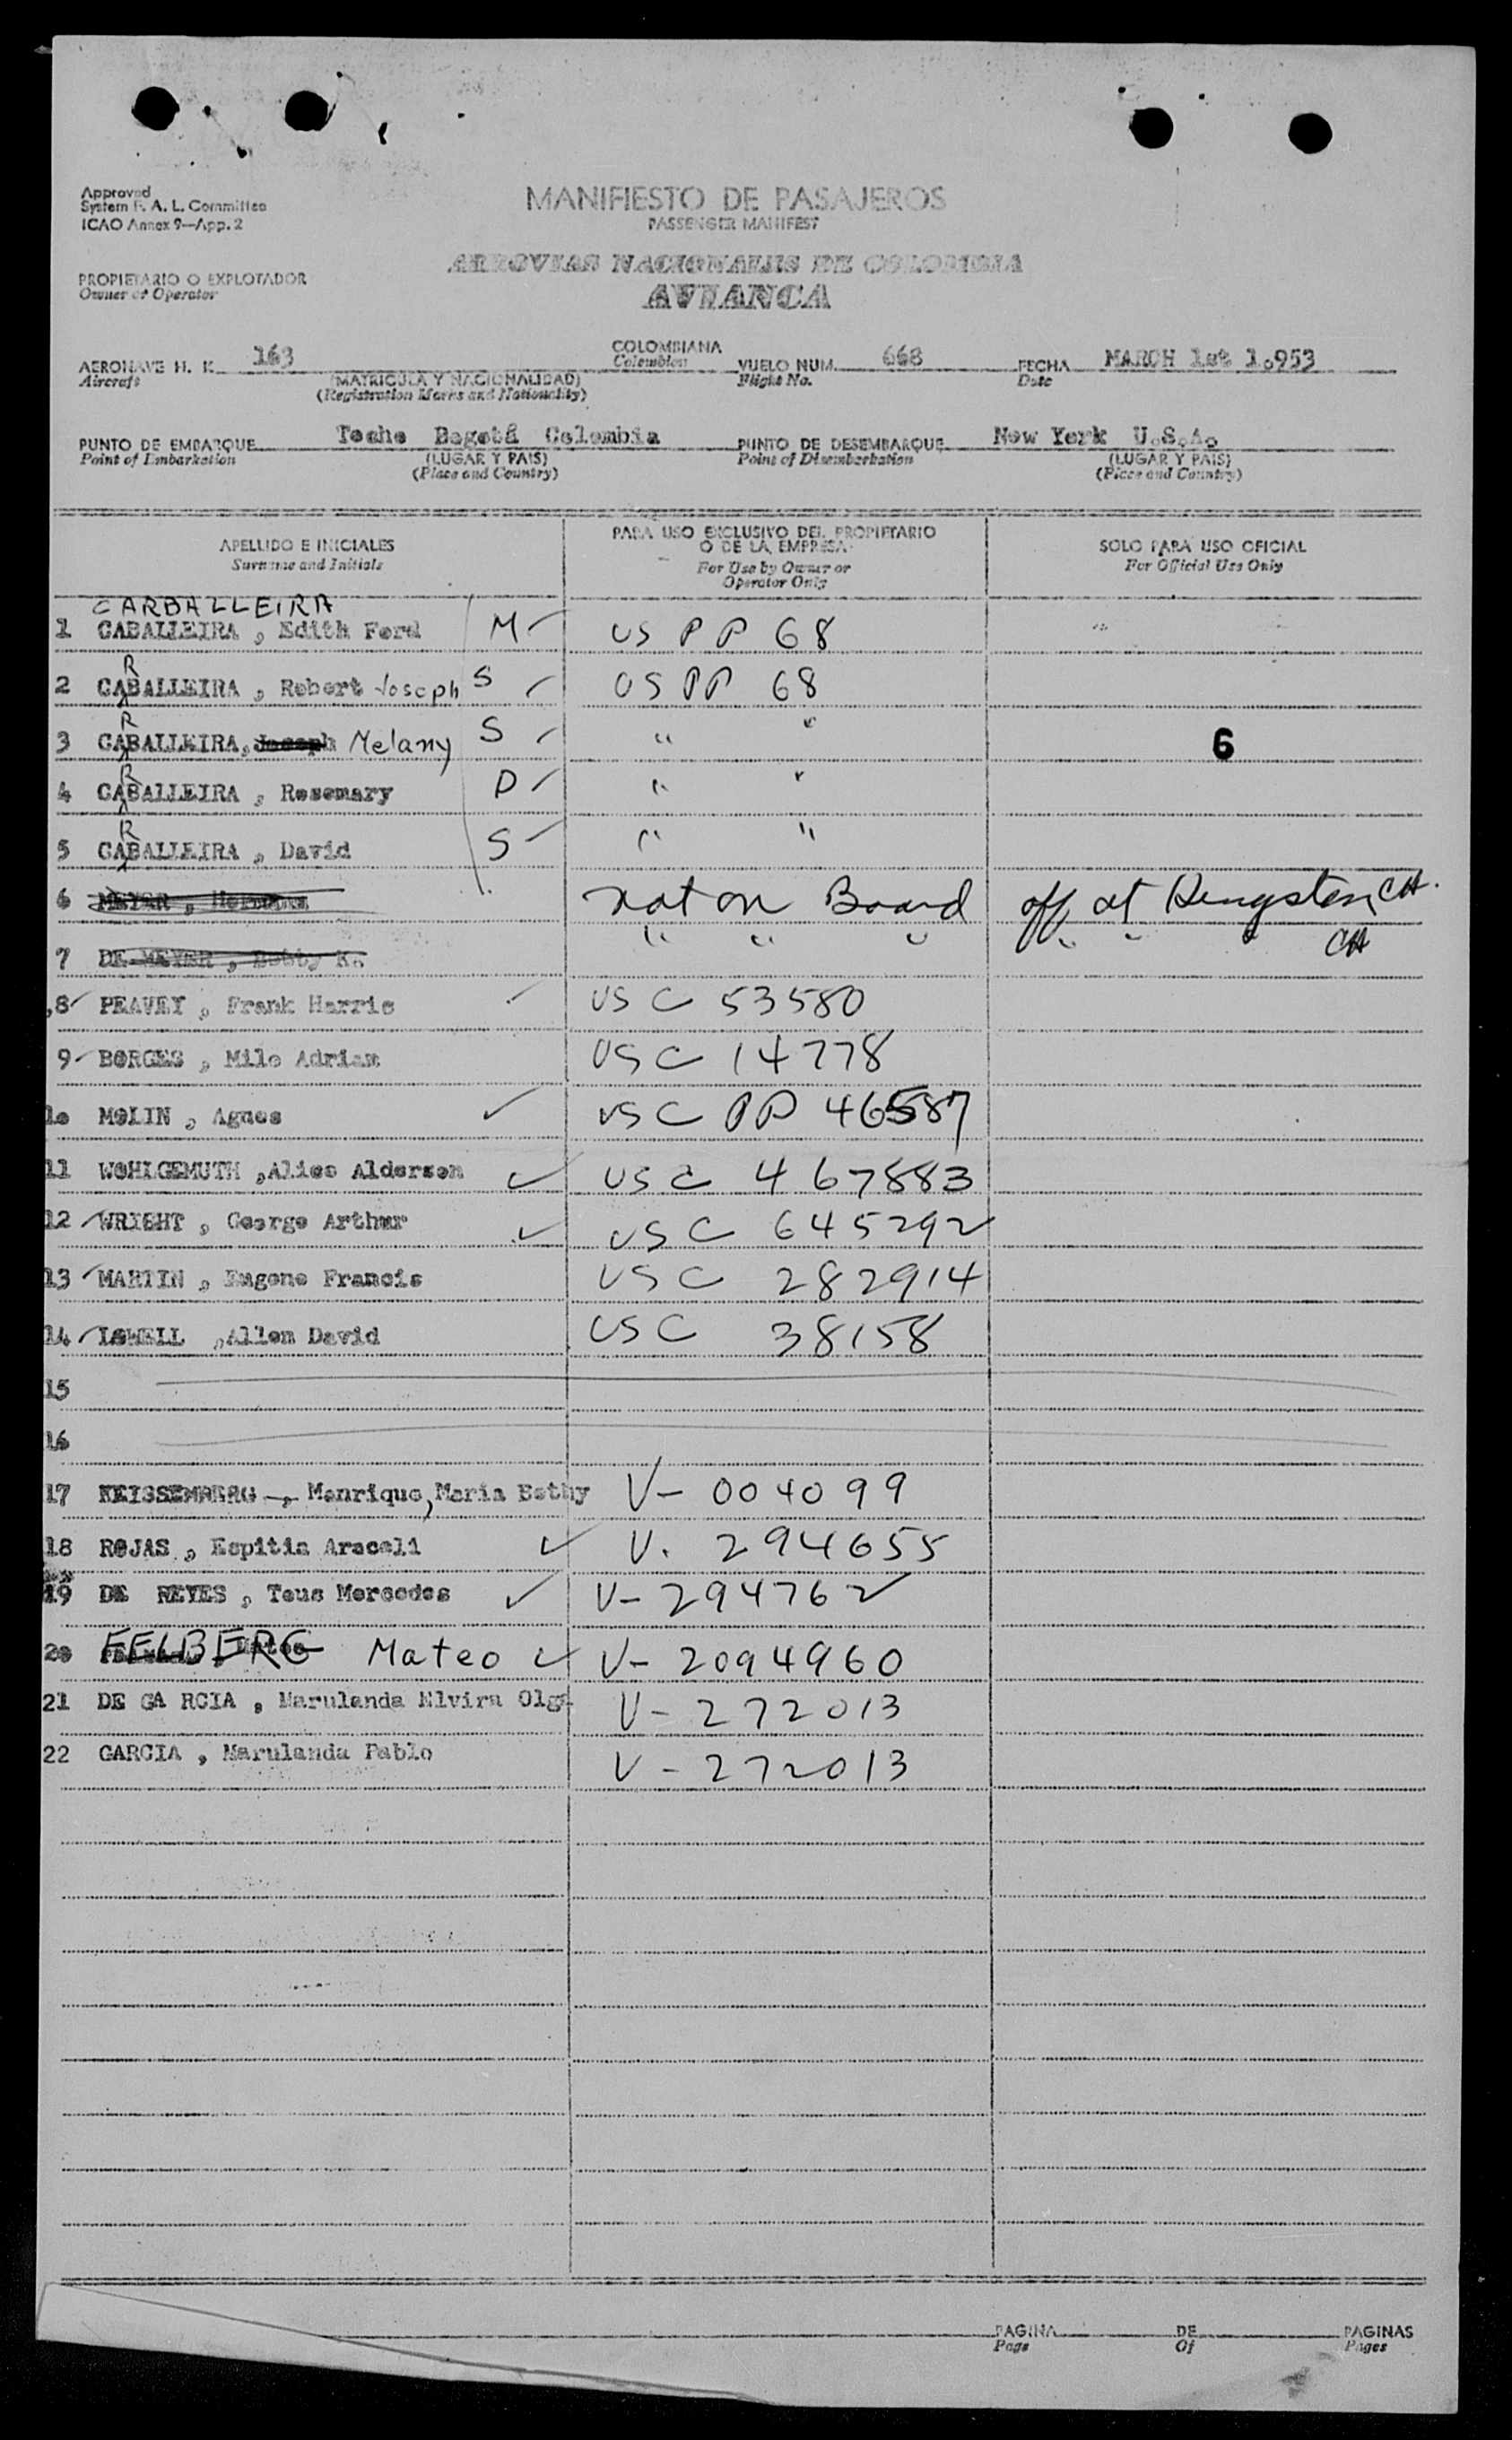 Approved
System F. A. L. Committee
ICAO Annex 9—App. 2
MANIFIESTO DE PASAJEROS
PASSENGER MANIFEST
PROPIETARIO O EXPLOTADOR
Owner or Operator
AEROVIAS NACIONALES DE COLOMBIA
AVIANCA
AERONAVE H. K. 163 COLOMBIANA VUELO NUM. 668 FECHA MARCH 1st 1.953
Aircraft (MATRICULA Y NACIONALIDAD) Colombian Flight No. Date
(Registration Marks and Nationality)
PUNTO DE EMBARQUE Techo Bogotá Colombia PUNTO DE DESEMBARQUE New York U.S.A.
Point of Embarkation (LUGAR Y PAIS) Point of Disembarkation (LUGAR Y PAIS)
(Place and Country) (Place and Country)
APELLIDO E INICIALES
Surname and Initials
PARA USO EXCLUSIVO DEL PROPIETARIO
O DE LA EMPRESA
For Use by Owner or
Operator Only
SOLO PARA USO OFICIAL
For Official Use Only
CARBALLEIRA
1 CABALLEIRA, Edith Ford M US PP 68
R
2 CABALLEIRA, Robert Joseph S US PP 68
R
3 CABALLEIRA, Joseph Melany S " " 6
R
4 CABALLEIRA, Rosemary D " "
R
5 CABALLEIRA, David S " "
6 MEYER, not on Board off at Kingston CH.
7 DE MEYER, Betty K. " " " " " " CH
8 PEAVEY, Frank Harris US C 53580
9 BORGES, Milo Adrian US C 14778
10 MOLIN, Agnes US C PP 46587
11 WOHLGEMUTH, Alice Alderson US C 467883
12 WRIGHT, George Arthur US C 645292
13 MARTIN, Eugene Francis US C 282914
14 LOWELL, Allen David US C 38158
15
16
17 Manrique, Maria Bethy V- 004099
18 ROJAS, Espitia Araceli V. 294655
19 DE REYES, Teus Mercedes V- 294762
20 FELBERG Mateo V- 2094960
21 DE GA RCIA, Marulanda Elvira Olga V- 272013
22 GARCIA, Marulanda Pablo V- 272013
PAGINA DE PAGINAS
Page Of Pages